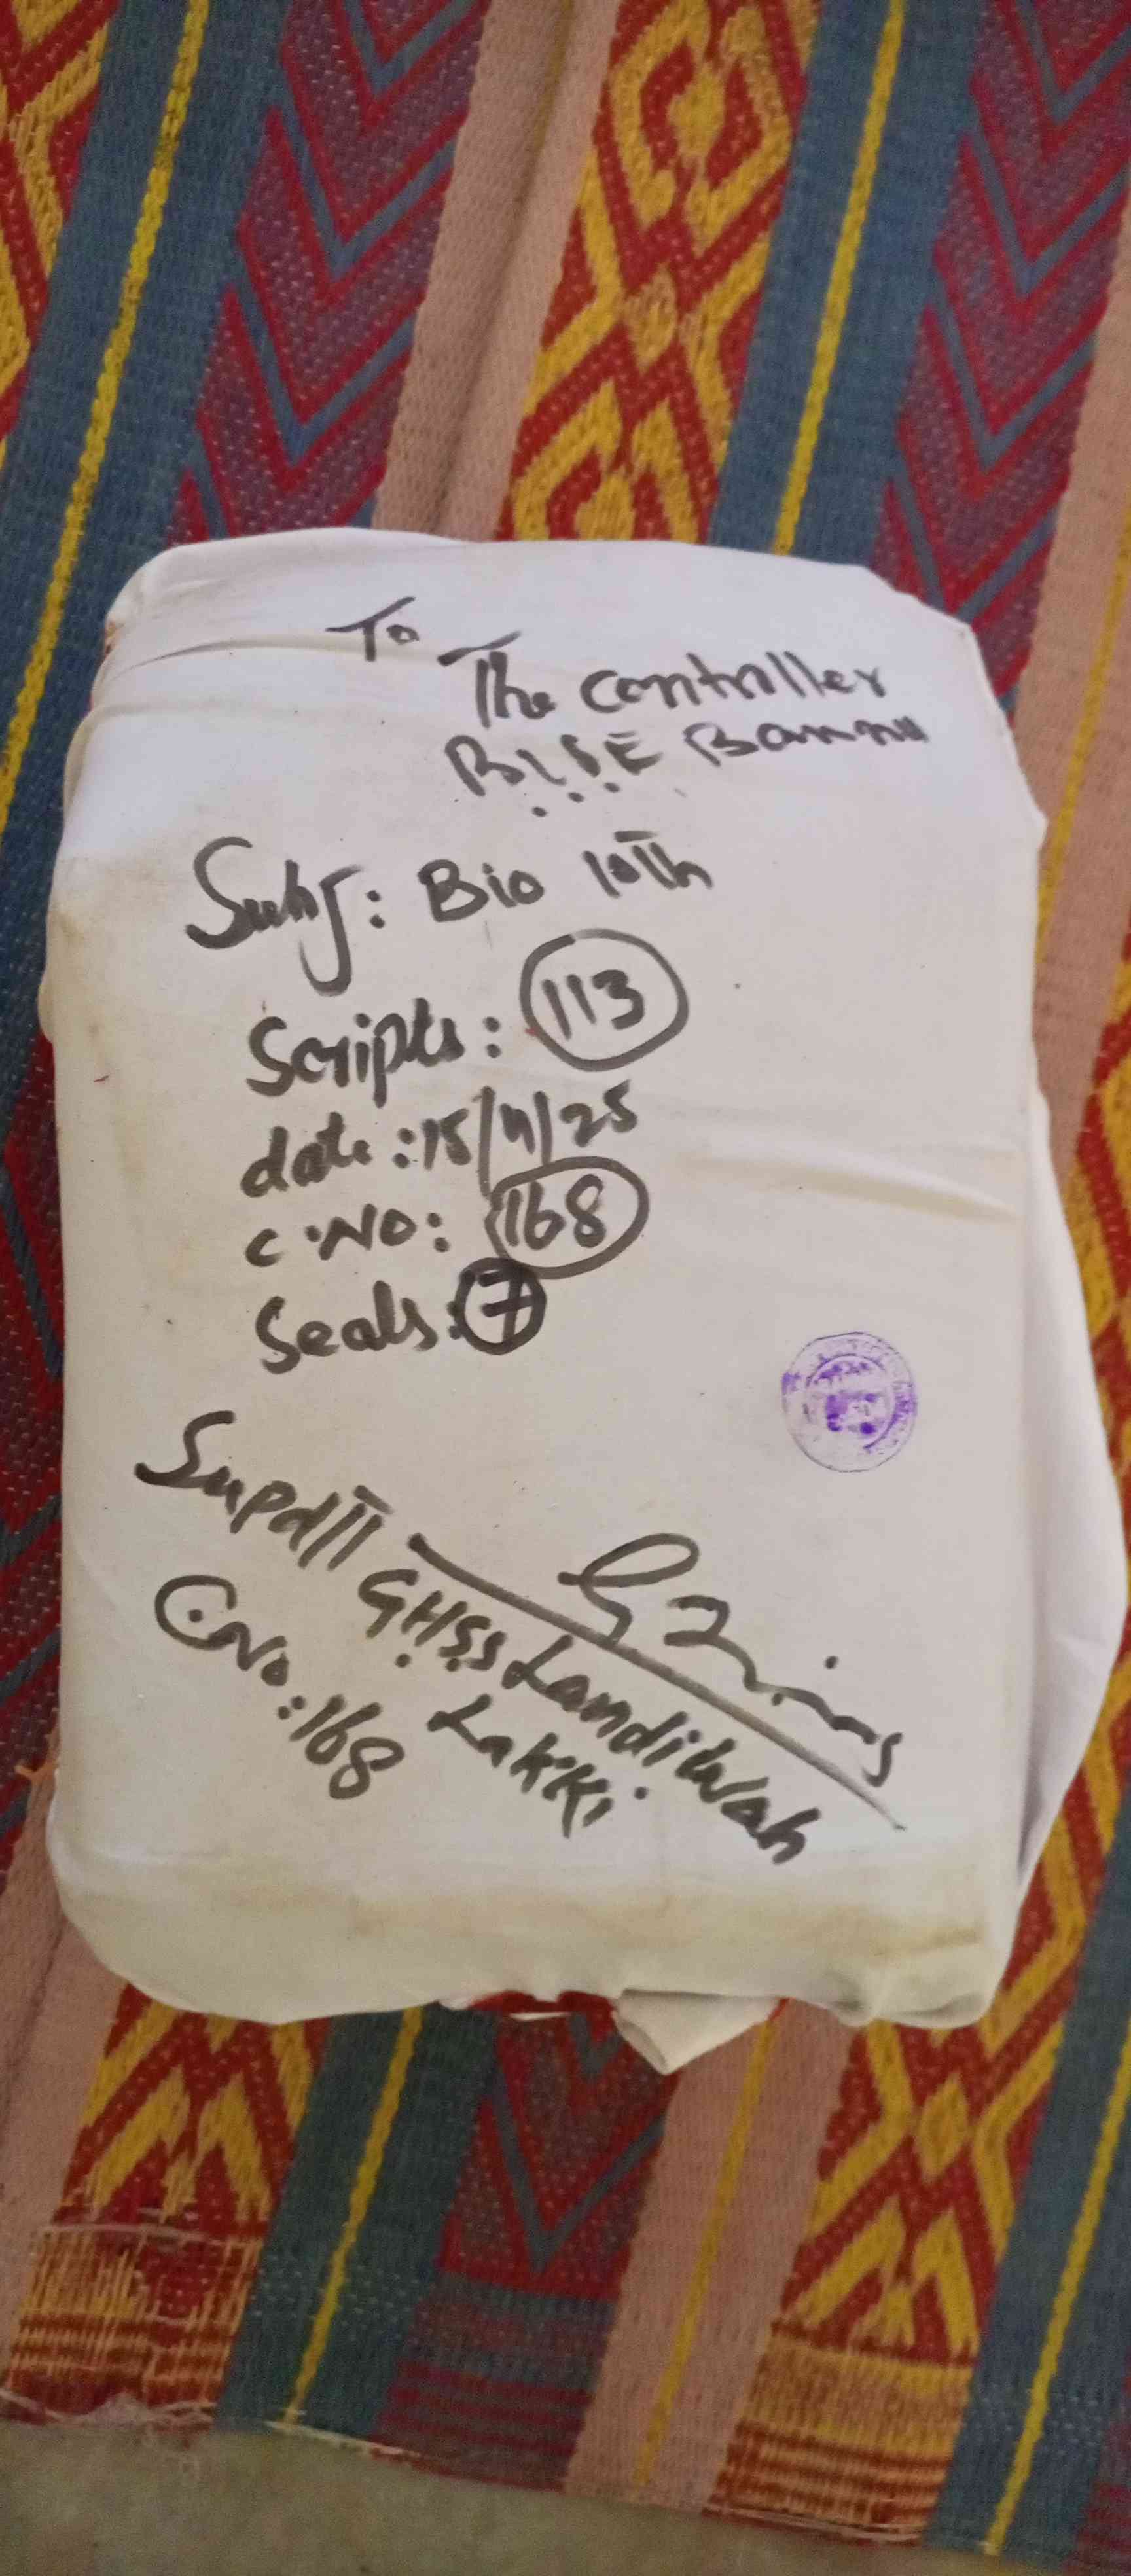 To
The controller
B.I.S.E Bannu
Subj: Bio 10th
Scripts: 113
date: 15/4/25
C.No: 168
Seals: 7
Supdtt
GHSS Landiwah
Lakki
C.No: 168